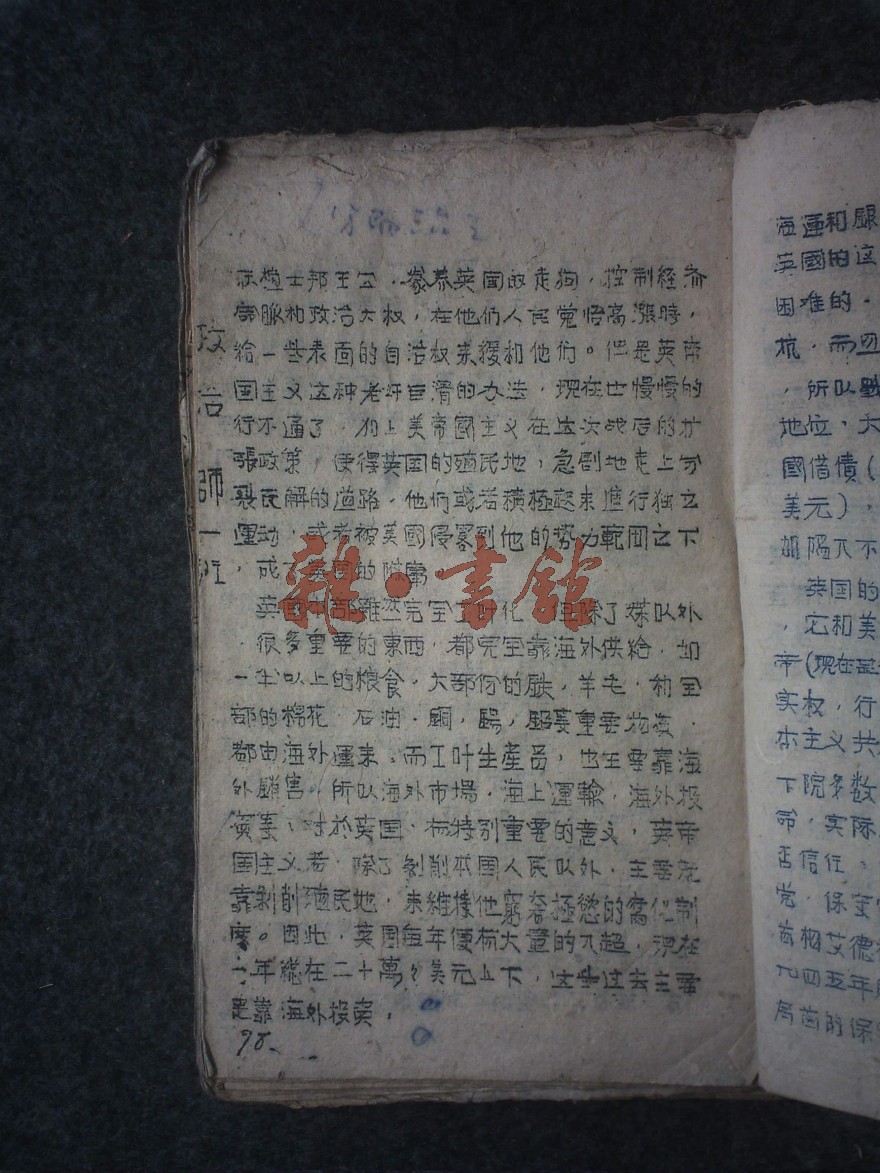 扶植土邦王公，豢养英国的走狗，控制经济
命脉和政治大权，在他们人民觉悟高漲時，
给一些表面的自治权来缓和他们。但是英帝
国主义这种老奸巨滑的办法，现在也慢慢的
行不通了，加上美帝國主义在这次战后的扩
張政策，使得英国的殖民地，急剧地走上分
裂瓦解的道路，他們或者積極起来進行独立
运动，或者被美國侵畧到他的势力範囲之下
，成了美国的附庸
英国本部雖然完全工叶化，但除了煤以外
，很多重要的東西，都完全靠海外供給，如
一半以上的粮食，大部份的鉄，羊毛，和全
部的棉花，石油，銅，錫，鋁等重要物資，
都由海外運来，而工叶生產品，也主要靠海
外銷售，所以海外市場，海上運輸，海外投
資等，对於英国，有特别重要的意义，英帝
国主义者，除了剝削本國人民以外，主要是
靠剝削殖民地，来維持他窮奢極慾的腐化制
度。因此，英国每年便有大量的入超，现在
一年總在二十萬万美元上下，这些过去主要
是靠海外投資，
98
政治
師一班
海運和服
英國的这
困难的，
抗，而四
，所以戰
地位，大
國借債（
美元），
加陷入不
英国的
，它和美
帝（现在是
实权，行
本主义共
下院多数
命，实际
否信任，
党，保守
首相艾德
九四五年
局面的保
雜·書館